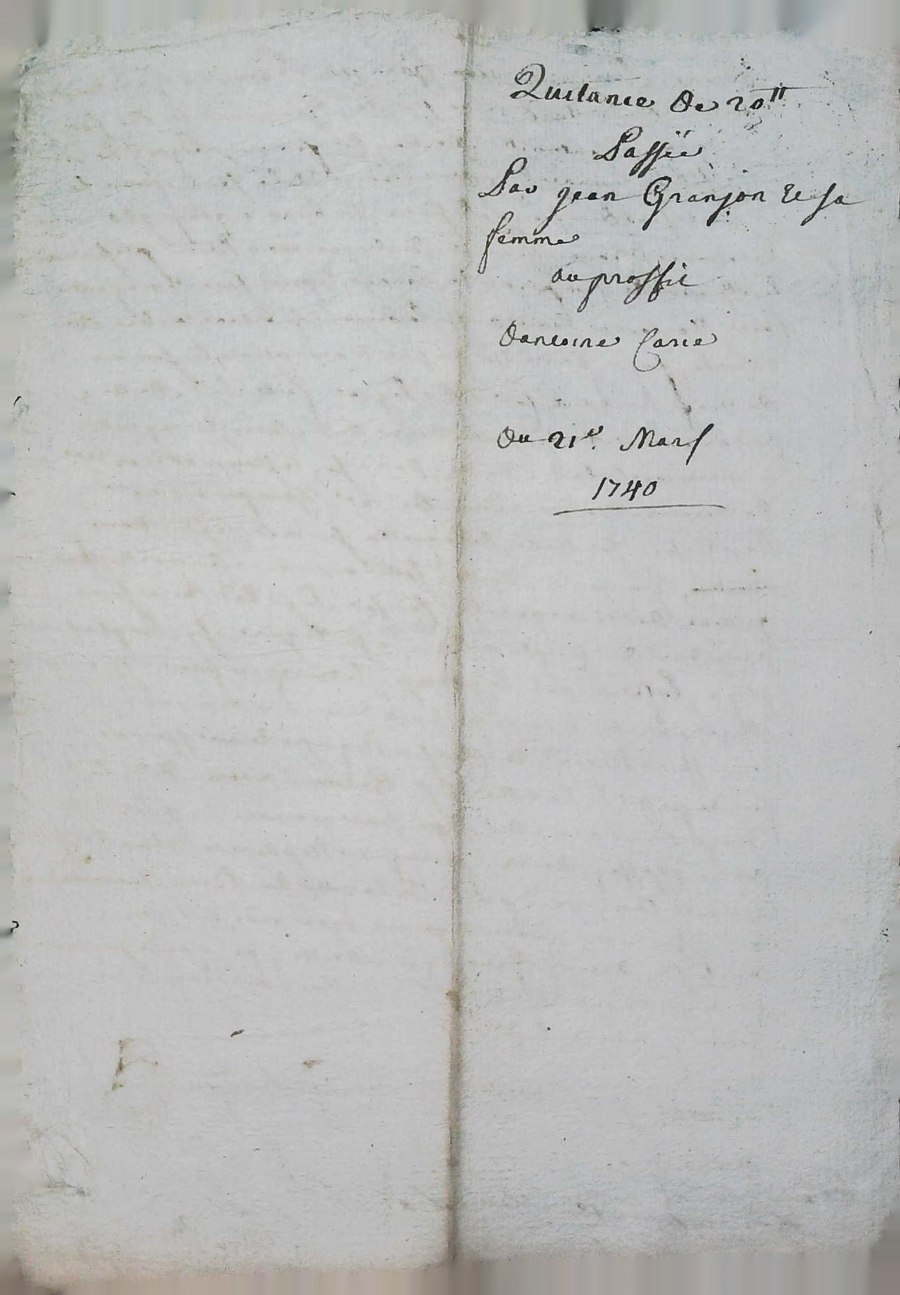 Quitance de 20ᵗᵗ
Passée
Par jean Granjon & sa
femme
au proffit
dantoine Carie
du 21ᵉ. Mars
1740